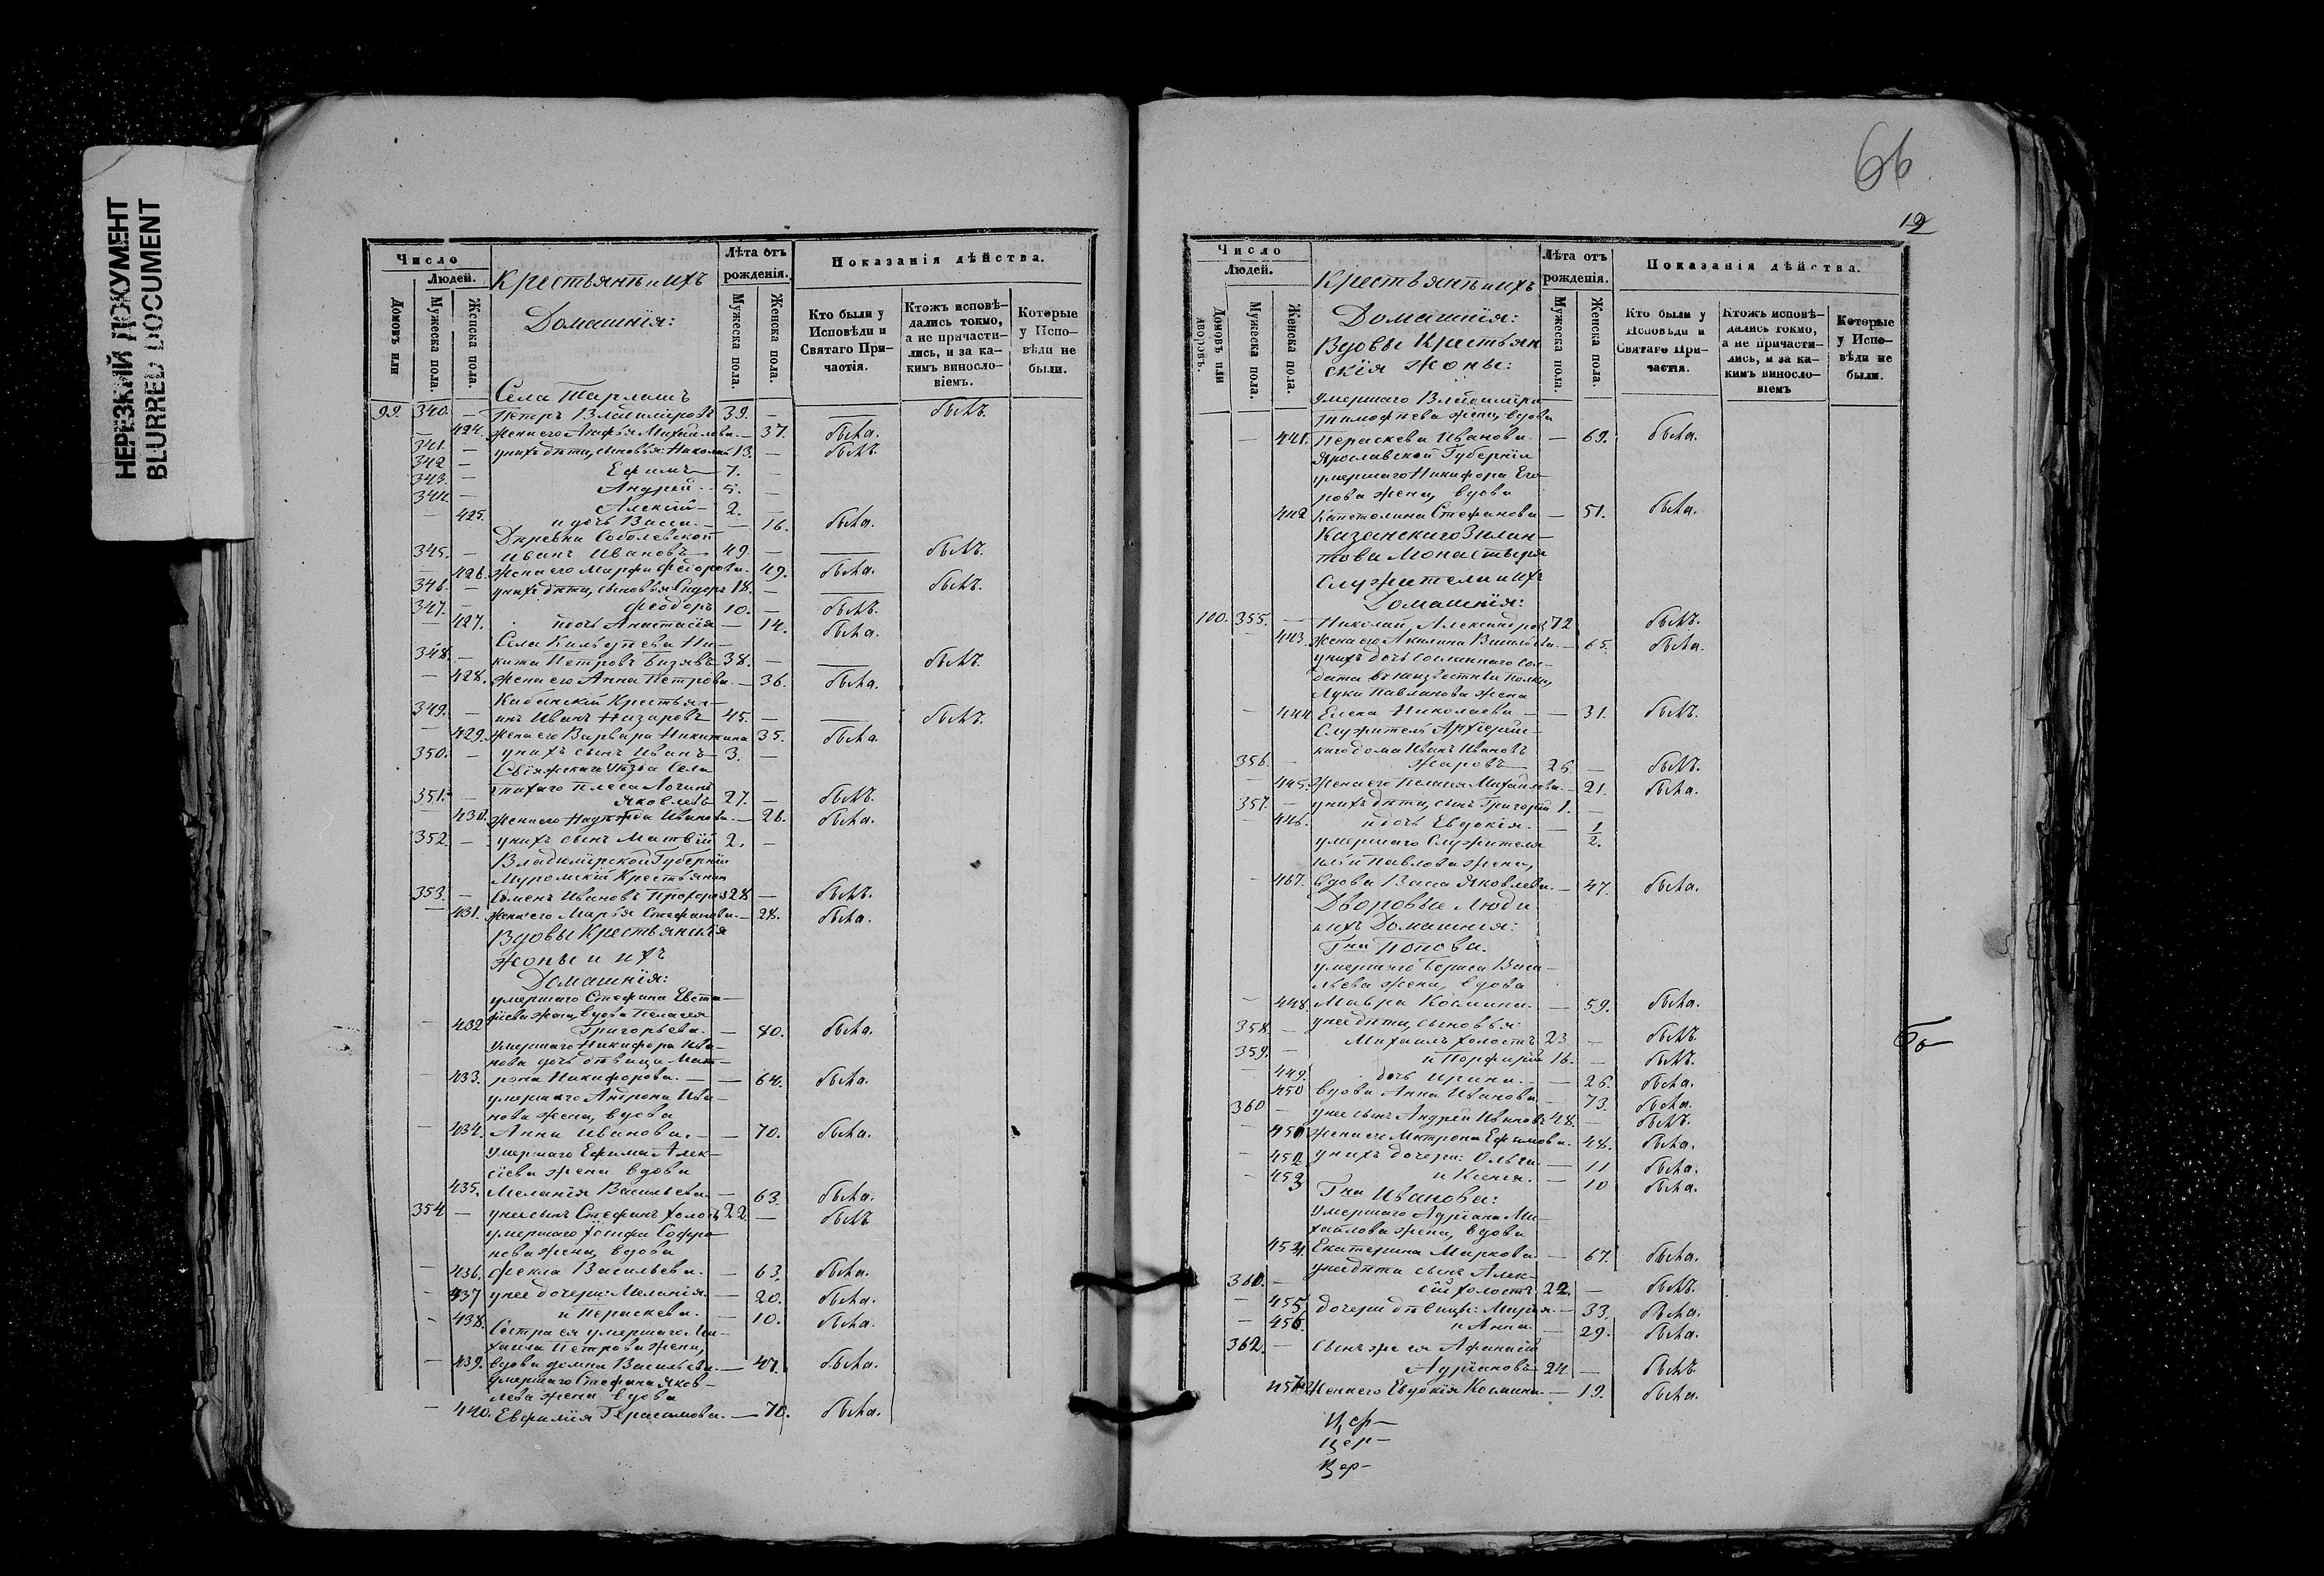 НЕРЕЗКИЙ ДОКУМЕНТ
BLURRED DOCUMENT
Число
Людей.
Домовъ или
Мужеска пола.
Женска пола.
Крестьянъ и ихъ
Домашнія:
Лѣта отъ рожденія.
Мужеска пола.
Женска пола.
Показанія дѣйства.
Кто были у Исповѣди и Святаго Причастія.
Ктожъ исповѣдались токмо, а не причастились, и за какимъ винословіемъ.
Которые у Исповѣди не были.
Села Тарлашъ
99. 340. — Петръ Владиміровъ 39. — — былъ.
— 424. жена его Михайлова. — 37. была.
341. — у нихъ дѣти, сыновья: Николай 13. — былъ.
342 — Ефимъ 7. —
343. — Андрей 5. —
344 — Алексій 2. —
— 425. и дочь Васса. — 16. была.
Деревни Соболевской
345. — Иванъ Ивановъ 49. — — былъ.
— 426. жена его Марфа Феодорова. 49. была.
346. — у нихъ дѣти, сыновья Сидоръ 18. — — былъ.
347. — Феодоръ 10. — былъ.
— 427. и дочь Анастасія — 14. была.
Села Кильдѣева Ни-
348. — кита Петровъ 38. — — былъ.
— 428. жена его Анна Петрова. — 36. была.
Кабанскій Крестьян-
349. — инъ Иванъ Назаровъ 45. — — былъ.
— 429. жена его Варвара Никитина 35. была.
350. — у нихъ сынъ Иванъ 3. —
Свіяжскаго Уѣзда Села
Тихаго плеса Логинъ
351. — Яковлевъ 27. — былъ.
— 430. жена его Надежда Иванова. — 26. была.
352 — у нихъ сынъ Матвѣй 2. —
Владимірской Губерніи
Муромскій Крестьянин
353. — Семенъ Ивановъ 28 — былъ.
— 431. жена его Марья Стефанова. — 28. была.
Вдовы Крестьянскія
жоны и ихъ
Домашнія:
умершаго Стефана Евста-
фіева жена, вдова Пелагея
— 432 Григорьева. — 80. была.
умершаго Никифора Ива-
нова дочь дѣвица Мат-
— 433. рона Никифорова. — 64. была.
умершаго Антрона Ива-
нова жена, вдова
— 434. Анна Иванова. — 70. была.
умершаго Ефима Алек-
сіева жена вдова
435. Меланія Васильева. — 63. была.
354 — у нее сынъ Стефанъ холостъ 22 — былъ
умершаго Іосифа Софро-
нова жена, вдова
— 436. Фекла Васильева. — 63. была.
— 437 у нее дочери: Меланія — 20. была.
— 438. и Параскева. — 10. была.
Сестра ея умершаго Ми-
хаила Петрова жена,
— 439. вдова Домна Васильева. — 47. была.
умершаго Стефана Яков-
лева жена вдова
— 440. Евфимія Герасимова. — 70. была.
66
12
Число
Людей.
Домовъ или дворовъ.
Мужеска пола.
Женска пола.
Крестьянъ и ихъ
Домашнія:
Вдовы Крестьян
скія жоны:
Лѣта отъ рожденія.
Мужеска пола.
Женска пола.
Показанія дѣйства.
Кто были у Исповѣди и Святаго Причастія.
Ктожъ исповѣдались токмо, а не причастились, и за какимъ винословіемъ
Которые у Исповѣди не были.
умершаго Владиміра
Тимофѣева жена, вдова
— 441. Параскева Иванова. — 69. была.
Ярославской Губерніи
умершаго Никифора Его-
рова жена, вдова
442 Капетолина Стефанова — 51. была.
Казанскаго Зилан-
това Монастыря
Служители и ихъ
Домашнія:
100. 355. — Николай Александров 72 былъ.
— 443 жена его Акилина — 65. была.
у нихъ дочь сосланнаго сол-
дата въ неизвѣстные полки,
Луки Павланова жена
— 444 Елена Николаева — 31. былъ.
Служитель Архіерей-
скаго дома Иванъ Ивановъ
356. — Жаровъ 26. — былъ.
— 445. Жена его Пелагея Михайлова. — 21. была.
357. — у нихъ дѣти, сынъ Григорій 1. —
446. и дочь Евдокія. — 1/2.
умершаго Служителя
Ильи Павлова жена,
— 467. вдова Васса Яковлева. — 47. была.
Дворовые люди
и ихъ Домашнія:
Гна Попова.
умершаго Бориса Васи-
льева жена, вдова
— 448. Мавра Космина. — 59. была.
у нее дѣти, сыновья:
358. — Михаилъ холостъ 23 — былъ.
359. — и Порфирій 16. — былъ.
— 449. дочь Ирина. — 26. была.
450 вдова Анна Иванова — 73. была.
360 — у нее сынъ Андрей Ивановъ 48. — былъ.
— 451 жена его Матрона Ефимова. 48. была.
— 452 у нихъ дочери: Ольга — 11 была.
— 453 и Ксенія. — 10 была.
Гна Иванова:
умершаго Адріана Ми-
хайлова жена, вдова
454. Екатерина Маркова — 67. была.
у нее дѣти сынъ Алек-
361. — сій холостъ 22. — былъ.
— 455 дочери дѣвицы: Марья — 33. была.
— 456. и Анна. — 29. была.
362. — Сынъ же ея Афанасій
Адріановъ 24 — былъ
457 Жена его Евдокія Космина — 19. была.
Цер-
Цер-
Цер-